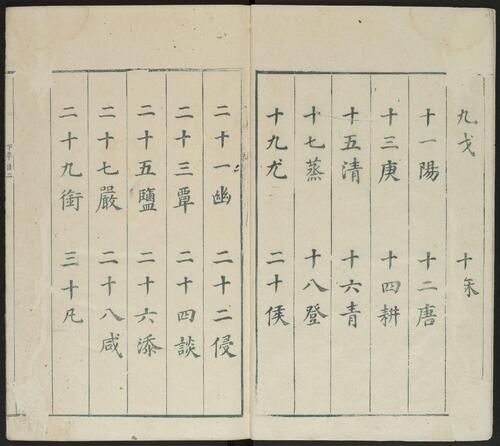 九戈 十
十一陽 十二唐
十三庚 十四耕
十五清 十六青
十七蒸 十八登
十九尤 二十侯
二十一幽 二十二侵
二十三覃 二十四談
二十五鹽 二十六添
二十七嚴 二十八咸
二十九銜 三十凡
下平目二